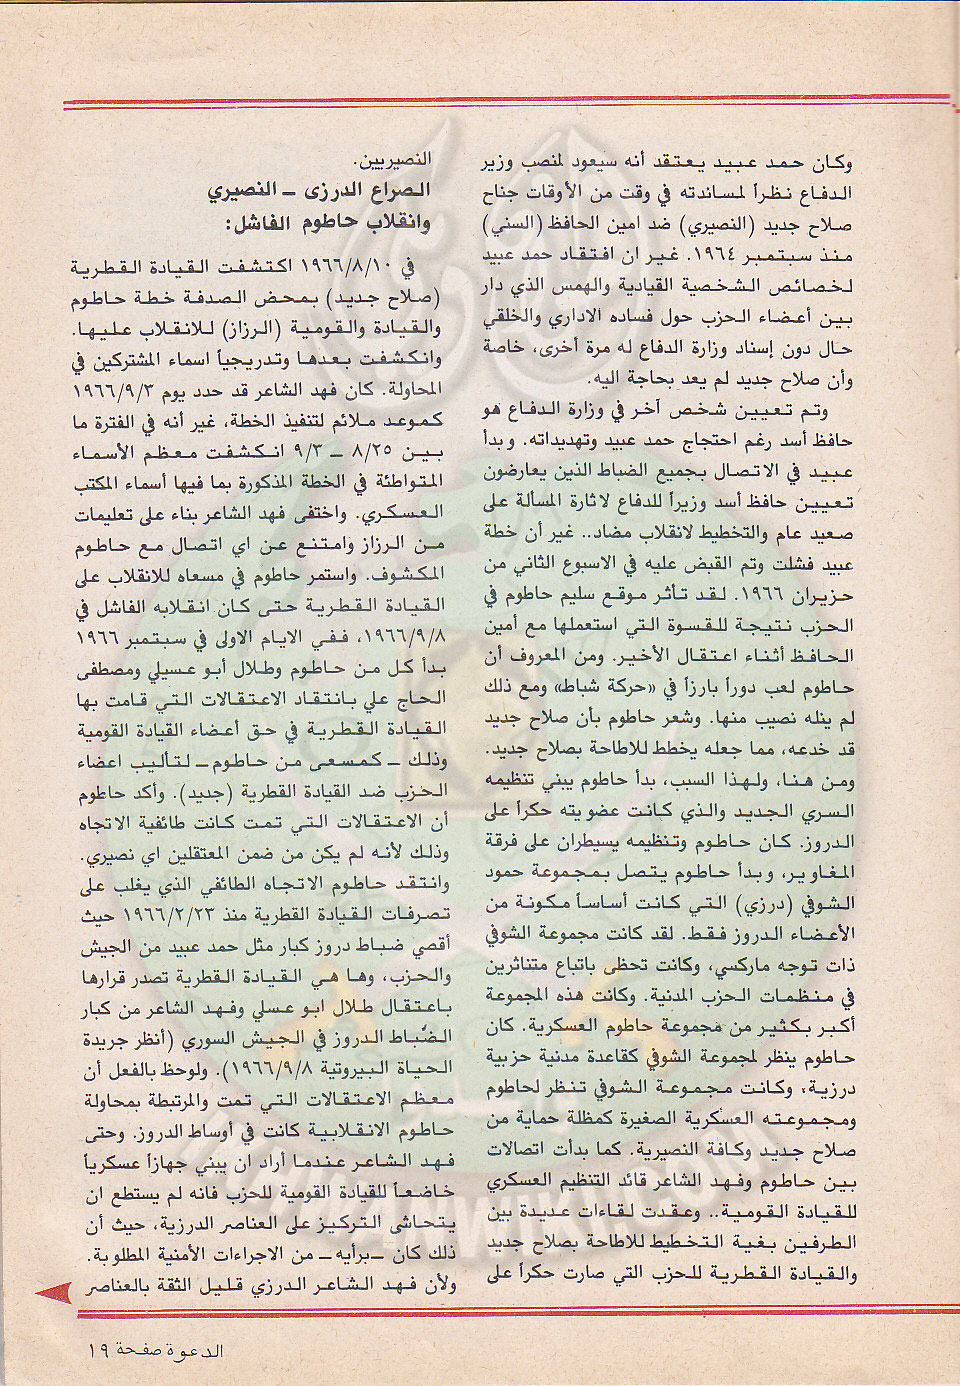 وكان حمد عبيد يعتقد أنه سيعود لمنصب وزير
الدفاع نظراً لمساندته في وقت من الأوقات جناح
صلاح جديد (النصيري) ضد امين الحافظ (السني)
منذ سبتمبر ١٩٦٤. غير ان افتقاد حمد عبيد
لخصائص الشخصية القيادية والهمس الذي دار
بين أعضاء الحزب حول فساده الاداري والخلقي
حال دون إسناد وزارة الدفاع له مرة أخرى، خاصة
وأن صلاح جديد لم يعد بحاجة اليه.
وتم تعيين شخص آخر في وزارة الدفاع هو
حافظ أسد رغم احتجاج حمد عبيد وتهديداته. وبدأ
عبيد في الاتصال بجميع الضباط الذين يعارضون
تعيين حافظ أسد وزيراً للدفاع لاثارة المسألة على
صعيد عام والتخطيط لانقلاب مضاد.. غير أن خطة
عبيد فشلت وتم القبض عليه في الاسبوع الثاني من
حزيران ١٩٦٦. لقد تأثر موقع سليم حاطوم في
الحزب نتيجة للقسوة التي استعملها مع أمين
الحافظ أثناء اعتقال الأخير. ومن المعروف أن
حاطوم لعب دوراً بارزاً في «حركة شباط» ومع ذلك
لم ينله نصيب منها. وشعر حاطوم بأن صلاح جديد
قد خدعه، مما جعله يخطط للاطاحة بصلاح جديد.
ومن هنا، ولهذا السبب، بدأ حاطوم يبني تنظيمه
السري الجديد والذي كانت عضويته حكراً على
الدروز. كان حاطوم وتنظيمه يسيطران على فرقة
المغاوير، وبدأ حاطوم يتصل بمجموعة حمود
الشوفي (درزي) التي كانت أساساً مكونة من
الأعضاء الدروز فقط. لقد كانت مجموعة الشوفي
ذات توجه ماركسي، وكانت تحظى باتباع متناثرين
في منظمات الحزب المدنية. وكانت هذه المجموعة
أكبر بكثير من مجموعة حاطوم العسكرية. كان
حاطوم ينظر لمجموعة الشوفي كقاعدة مدنية حزبية
درزية، وكانت مجموعة الشوفي تنظر لحاطوم
ومجموعته العسكرية الصغيرة كمظلة حماية من
صلاح جديد وكافة النصيرية. كما بدأت اتصالات
بين حاطوم وفهد الشاعر قائد التنظيم العسكري
للقيادة القومية.. وعقدت لقاءات عديدة بين
الطرفين بغية التخطيط للاطاحة بصلاح جديد
والقيادة القطرية للحزب التي صارت حكراً على
النصيريين.
الصراع الدرزى ــ النصيري
وانقلاب حاطوم الفاشل:
في ١٩٦٦/٨/١٠ اكتشفت القيادة القطرية
(صلاح جديد) بمحض الصدفة خطة حاطوم
والقيادة والقومية (الرزاز) للانقلاب عليها.
وانكشفت بعدها وتدريجياً اسماء المشتركين في
المحاولة. كان فهد الشاعر قد حدد يوم ١٩٦٦/٩/٣
كموعد ملائم لتنفيذ الخطة، غير أنه في الفترة ما
بين ٨/٢٥ ــ ٩/٣ انكشفت معظم الأسماء
المتواطئة في الخطة المذكورة بما فيها أسماء المكتب
العسكري. واختفى فهد الشاعر بناء على تعليمات
من الرزاز وامتنع عن اي اتصال مع حاطوم
المكشوف. واستمر حاطوم في مسعاه للانقلاب على
القيادة القطرية حتى كان انقلابه الفاشل في
١٩٦٦/٩/٨، ففي الايام الاولى في سبتمبر ١٩٦٦
بدأ كل من حاطوم وطلال أبو عسيلي ومصطفى
الحاج علي بانتقاد الاعتقالات التي قامت بها
القيادة القطرية في حق أعضاء القيادة القومية
وذلك ــ كمسعى من حاطوم ــ لتأليب اعضاء
الحزب ضد القيادة القطرية (جديد). وأكد حاطوم
أن الاعتقالات التي تمت كانت طائفية الاتجاه
وذلك لأنه لم يكن من ضمن المعتقلين اي نصيري.
وانتقد حاطوم الاتجاه الطائفي الذي يغلب على
تصرفات القيادة القطرية منذ ١٩٦٦/٢/٢٣ حيث
أقصي ضباط دروز كبار مثل حمد عبيد من الجيش
والحزب، وها هي القيادة القطرية تصدر قرارها
باعتقال طلال ابو عسلي وفهد الشاعر من كبار
الضباط الدروز في الجيش السوري (أنظر جريدة
الحياة البيروتية ١٩٦٦/٩/٨). ولوحظ بالفعل أن
معظم الاعتقالات التي تمت والمرتبطة بمحاولة
حاطوم الانقلابية كانت في أوساط الدروز. وحتى
فهد الشاعر عندما أراد ان يبني جهازاً عسكرياً
خاضعاً للقيادة القومية للحزب فانه لم يستطع ان
يتحاشى التركيز على العناصر الدرزية، حيث أن
ذلك كان ــ برأيه ــ من الاجراءات الأمنية المطلوبة.
ولأن فهد الشاعر الدرزي قليل الثقة بالعناصر
الدعوة صفحة ١٩